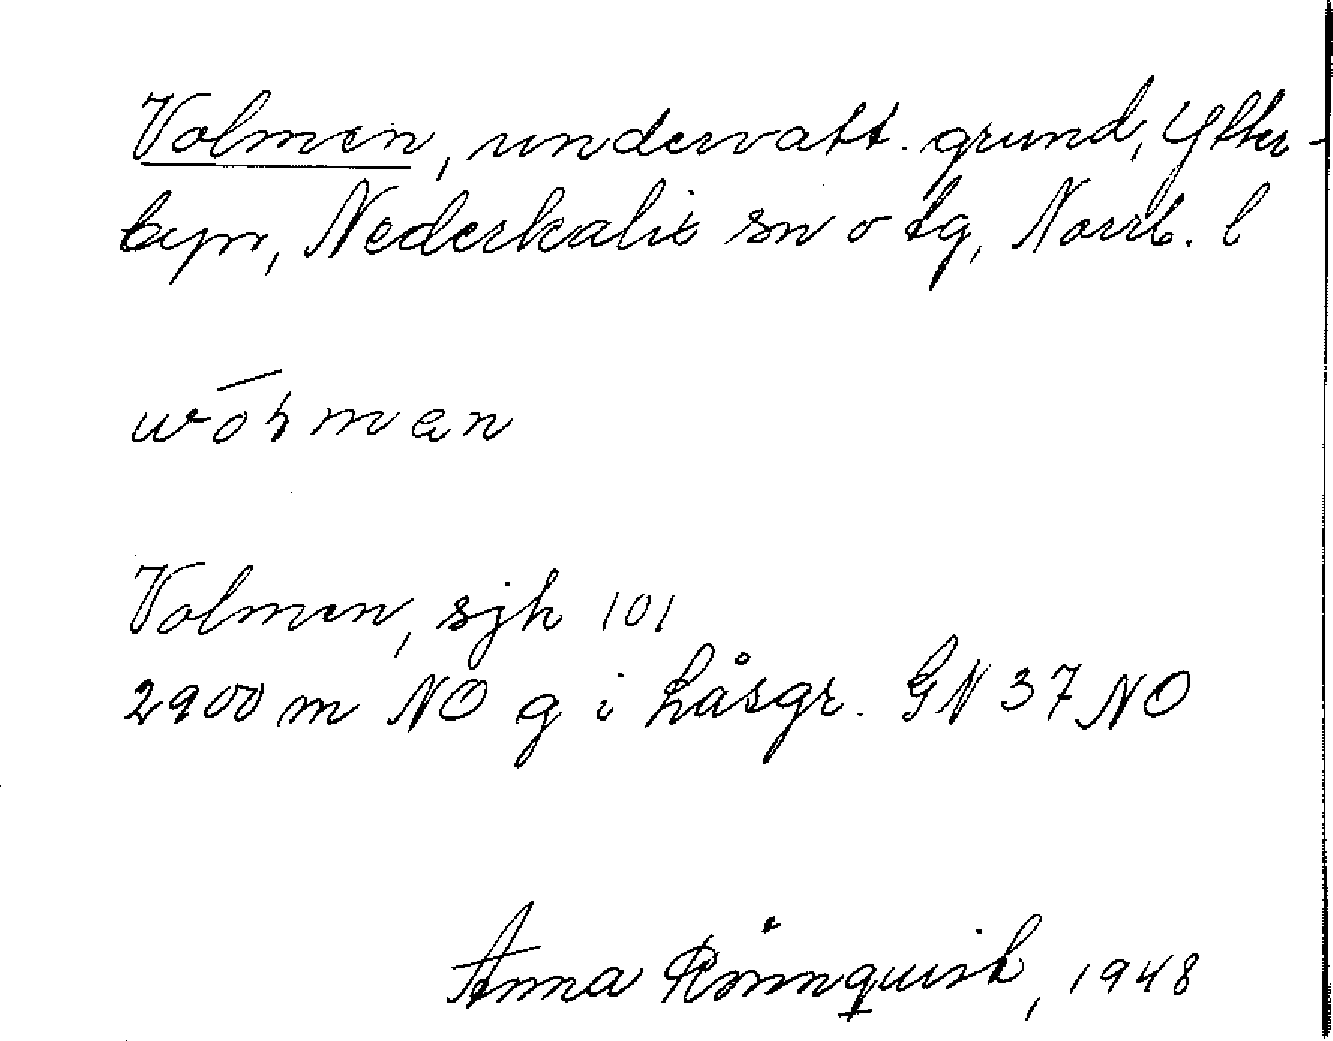 Volmen, undervatt. grund, Ytter-
byn, Nederkalix sn o tg, Norrb. l
Volmen, sjk 101
2900 m NO g i Låsgr. GN 37 NO
Anna Rönnquist, 1948